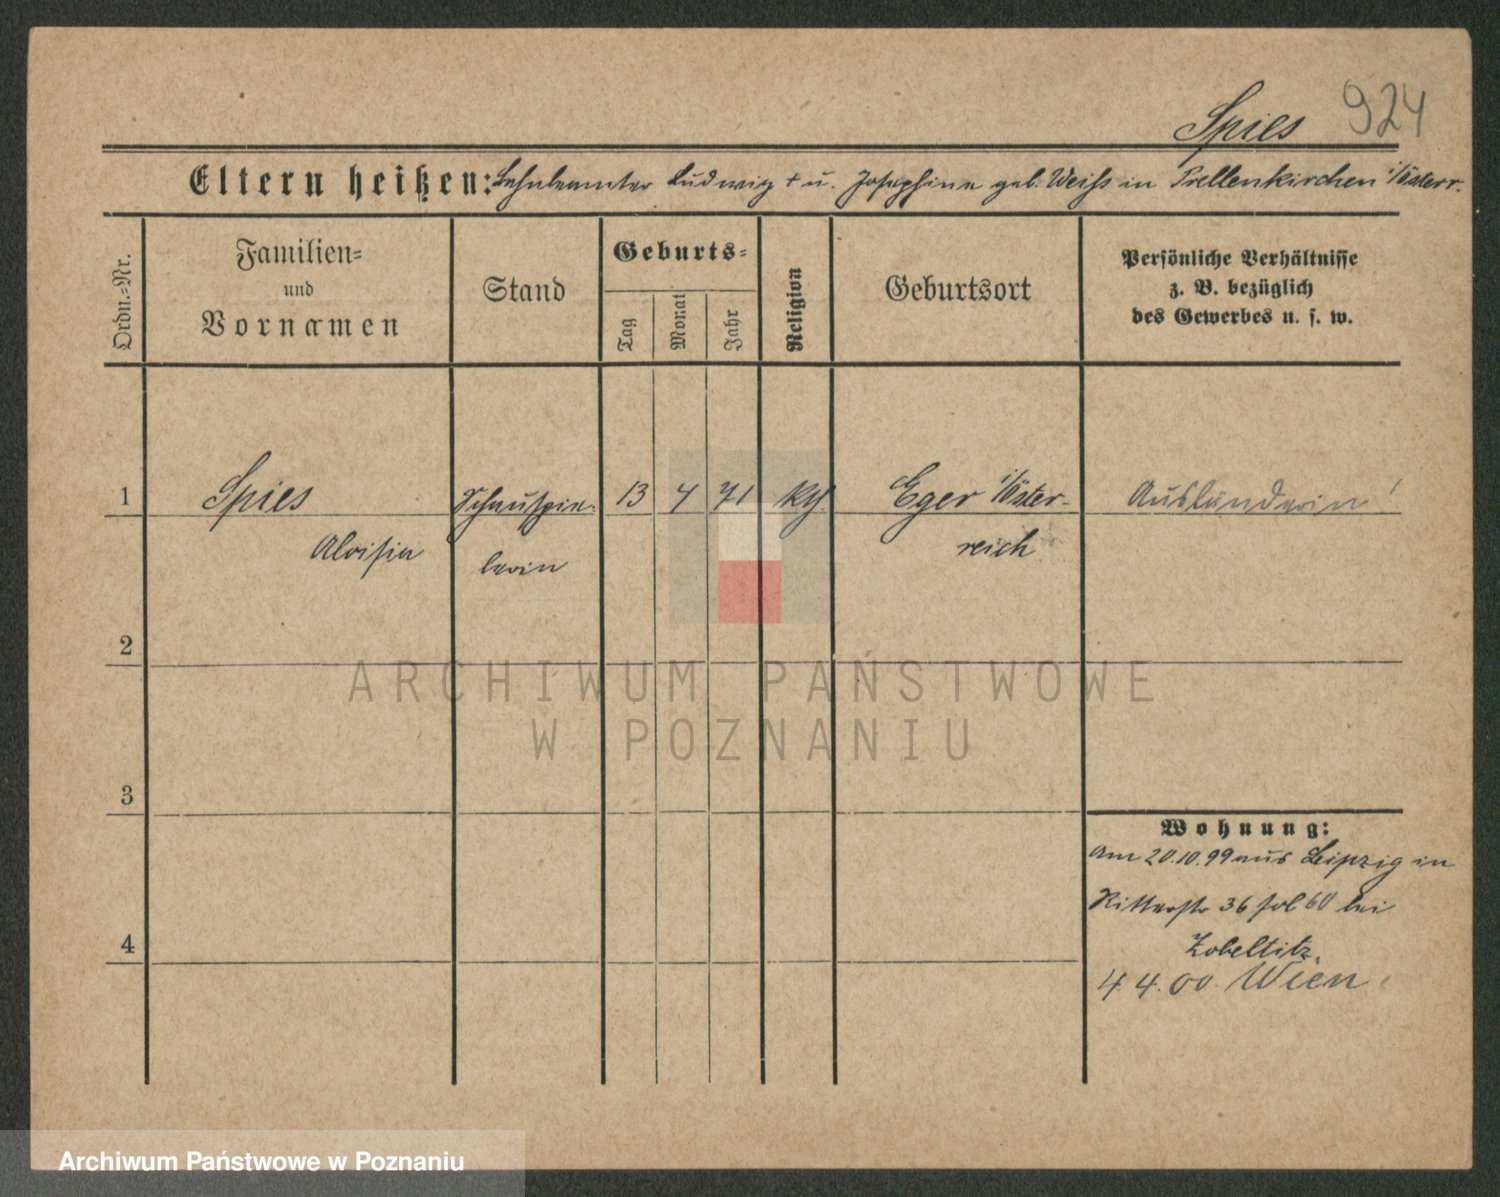 Spies 924
Eltern heißen: Bahnbeamter Ludwig + u. Josephine geb. Weiss in Prellenkirchen i/Österr.
Ordn.-Nr.
Familien-
und
Vornamen
Stand
Geburts-
Tag
Monat
Jahr
Religion
Geburtsort
Persönliche Verhältnisse
z. B. bezüglich
des Gewerbes u. s. w.
1 Spies Schauspie- 13 4 71 kth. Eger i/Öster- Ausländerin!
Aloisia lerin reich
2
ARCHIWUM PAŃSTWOWE
W POZNANIU
3
Wohnung:
Am 20.10.99 aus Leipzig in
Ritterstr 36 fol 60 bei
4
Zobeltitz.
4. 4. 00. Wien.
Archiwum Państwowe w Poznaniu